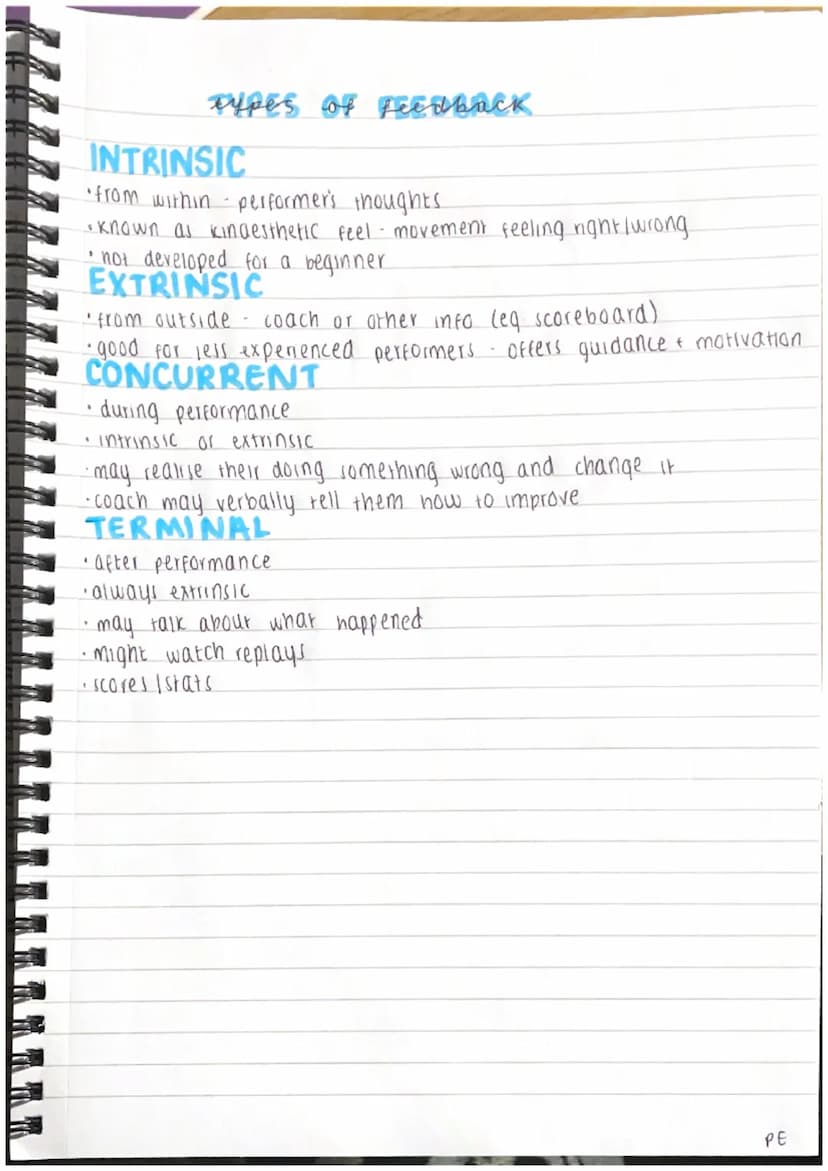 types of feedback
INTRINSIC
•from within - performer's thoughts
•known as kinaesthetic feel - movement feeling right/wrong
•not developed for a beginner
EXTRINSIC
•from outside - coach or other info (eg scoreboard)
•good for less experienced performers - offers guidance + motivation
CONCURRENT
•during performance
•intrinsic or extrinsic
•may realise their doing something wrong and change it
•coach may verbally tell them how to improve
TERMINAL
•after performance
•always extrinsic
•may talk about what happened
•might watch replays
•scores/stats
PE